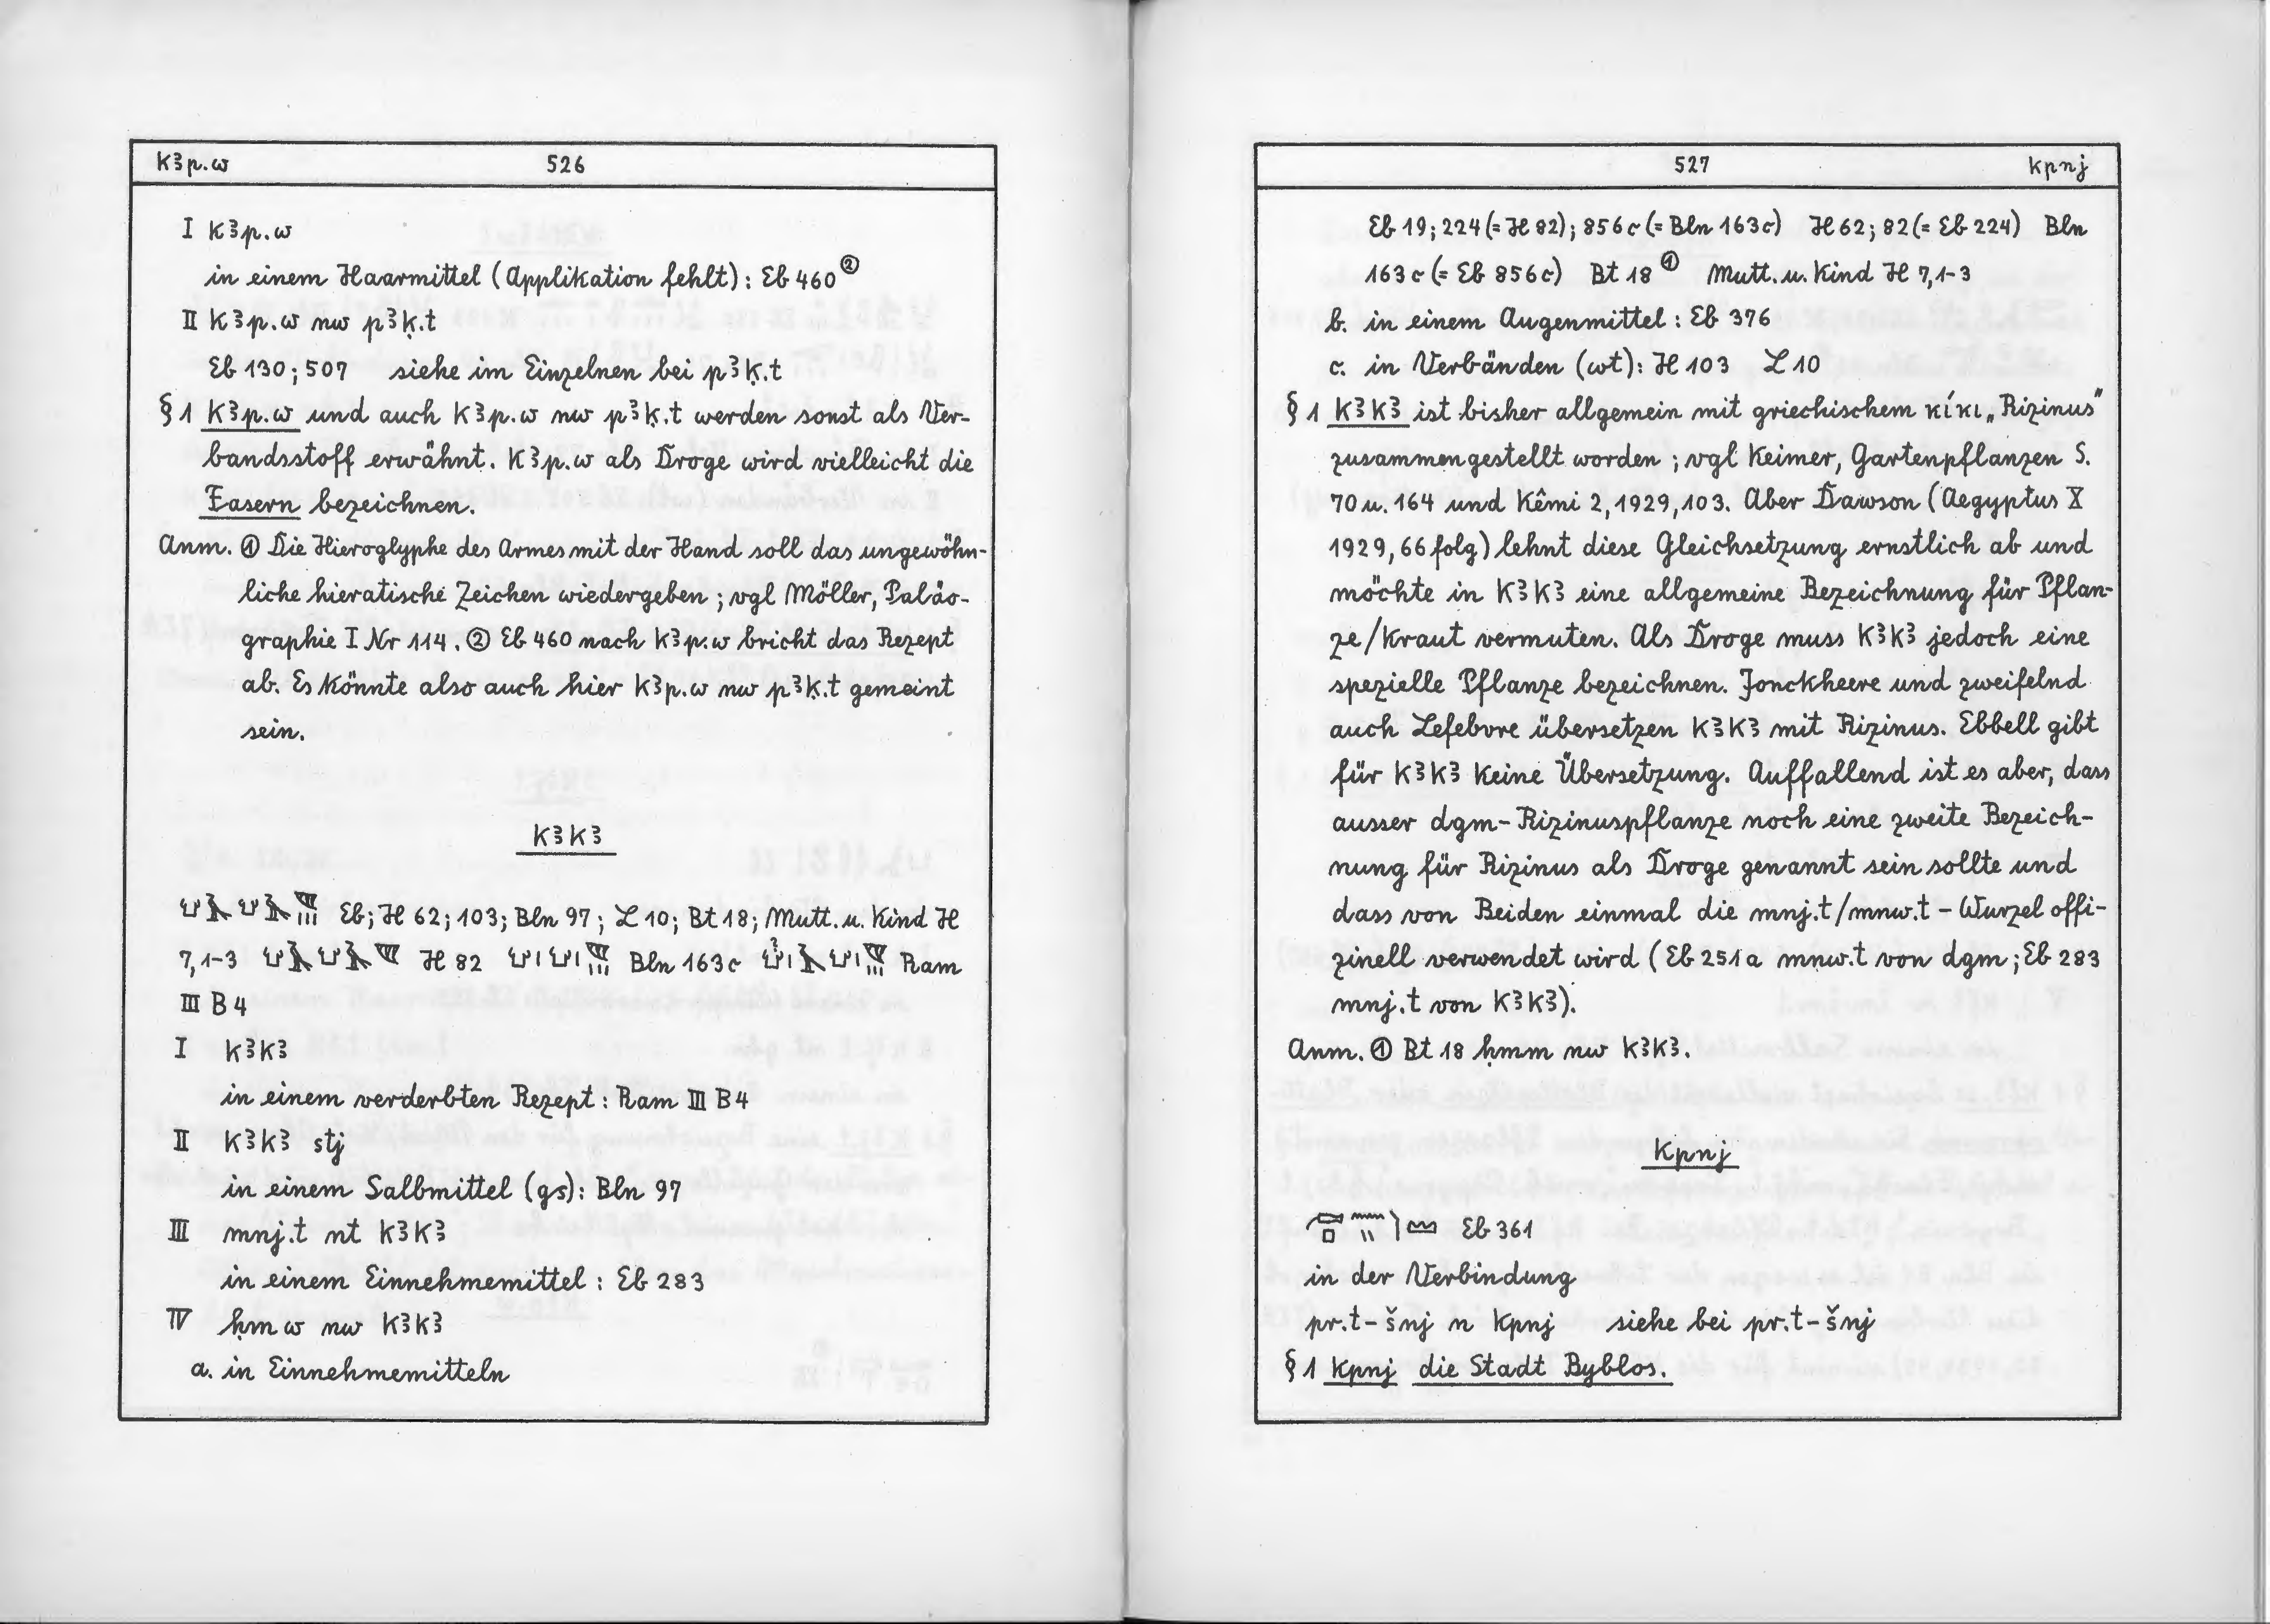 k3p.w 526
I k3p.w
in einem Haarmittel (Applikation fehlt): Eb 460 ②
II k3p.w nw p3ḳ.t
Eb 130; 507 siehe im Einzelnen bei p3ḳ.t
§ 1 k3p.w und auch k3p.w nw p3ḳ.t werden sonst als Ver-
bandsstoff erwähnt. k3p.w als Droge wird vielleicht die
Fasern bezeichnen.
Anm. ① Die Hieroglyphe des Armes mit der Hand soll das ungewöhn-
liche hieratische Zeichen wiedergeben; vgl Möller, Paläo-
graphie I Nr 114. ② Eb 460 nach k3p.w bricht das Rezept
ab. Es könnte also auch hier k3p.w nw p3ḳ.t gemeint
sein.
k3k3
Eb; H 62; 103; Bln 97; L 10; Bt 18; Mutt. u. Kind H
7,1-3 H 82 Bln 163c Ram
III B 4
I k3k3
in einem verderbten Rezept: Ram III B 4
II k3k3 stj
in einem Salbmittel (gs): Bln 97
III mnj.t nt k3k3
in einem Einnehmemittel: Eb 283
IV ḥmw nw k3k3
a. in Einnehmemitteln
527 kpnj
Eb 19; 224 (= H 82); 856c (= Bln 163c) H 62; 82 (= Eb 224) Bln
163c (= Eb 856c) Bt 18 ① Mutt. u. Kind H 7,1-3
b. in einem Augenmittel: Eb 376
c. in Verbänden (wt): H 103 L 10
§ 1 k3k3 ist bisher allgemein mit griechischem κίκι „Rizinus"
zusammengestellt worden; vgl Keimer, Gartenpflanzen S.
70 u. 164 und Kêmi 2, 1929, 103. Aber Dawson (Aegyptus X
1929, 66 folg) lehnt diese Gleichsetzung ernstlich ab und
möchte in k3k3 eine allgemeine Bezeichnung für Pflan-
ze/Kraut vermuten. Als Droge muss k3k3 jedoch eine
spezielle Pflanze bezeichnen. Jonckheere und zweifelnd
auch Lefebvre übersetzen k3k3 mit Rizinus. Ebbell gibt
für k3k3 keine Übersetzung. Auffallend ist es aber, dass
ausser dgm-Rizinuspflanze noch eine zweite Bezeich-
nung für Rizinus als Droge genannt sein sollte und
dass von Beiden einmal die mnj.t/mnw.t - Wurzel offi-
zinell verwendet wird (Eb 251a mnw.t von dgm; Eb 283
mnj.t von k3k3).
Anm. ① Bt 18 ḥmm nw k3k3.
kpnj
Eb 361
in der Verbindung
pr.t-šnj n kpnj siehe bei pr.t-šnj
§ 1 kpnj die Stadt Byblos.